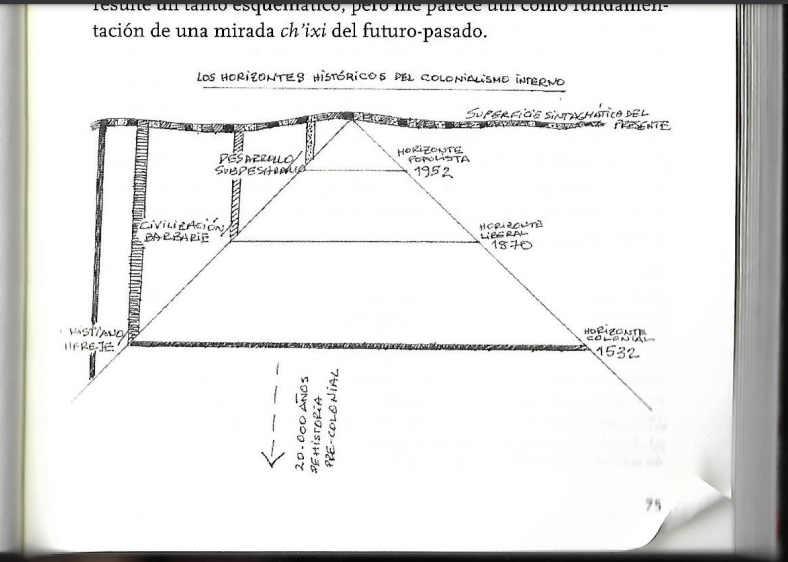 resulte un tanto esquemático, pero me parece útil como fundamen-
tación de una mirada ch'ixi del futuro-pasado.
LOS HORIZONTES HISTÓRICOS DEL COLONIALISMO INTERNO
SUPERFICIE SINTAGMÁTICA DEL
PRESENTE
DESARROLLO/
SUBDESARROLLO
HORIZONTE
POPULISTA
1952
CIVILIZACIÓN/
BARBARIE
HORIZONTE
LIBERAL
1870
CRISTIANO/
HEREJE
HORIZONTE
COLONIAL
1532
20.000 AÑOS
DE HISTORIA
PRE-COLONIAL
75